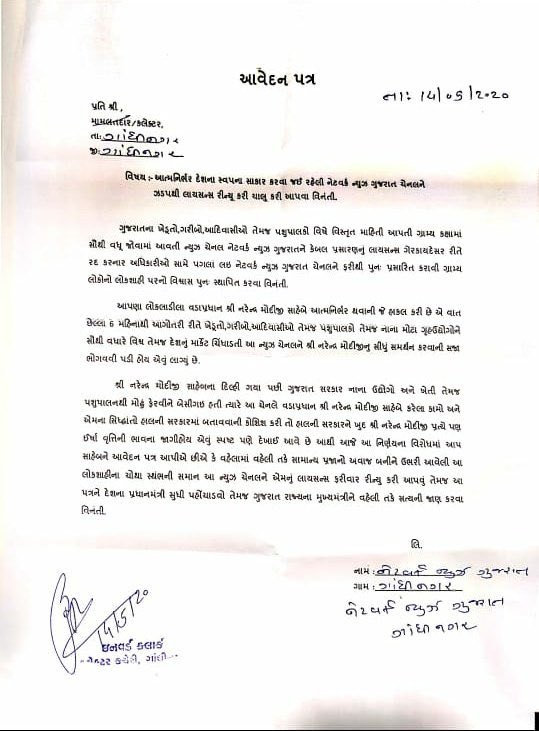 આવેદન પત્ર
તાઃ 14/05/2020
પ્રતિ શ્રી,
મામલતદાર/કલેક્ટર,
તાઃ ગાંધીનગર
જીઃ ગાંધીનગર
વિષય :- આત્મનિર્ભર દેશના સ્વપના સાકાર કરવા જઈ રહેલી નેટવર્ક ન્યુઝ ગુજરાત ચેનલને
ઝડપથી લાયસન્સ રીન્યૂ કરી ચાલુ કરી આપવા વિનંતી.
ગુજરાતના ખેડૂતો,ગરીબો,આદિવાસીઓ તેમજ પશુપાલકો વિષે વિસ્તૃત માહિતી આપતી ગ્રામ્ય કક્ષામાં
સૌથી વધૂ જોવામાં આવતી ન્યુઝ ચેનલ નેટવર્ક ન્યુઝ ગુજરાતને કેબલ પ્રસારણનું લાયસન્સ ગેરકાયદેસર રીતે
રદ કરનાર અધિકારીઓ સામે પગલા લઇ નેટવર્ક ન્યુઝ ગુજરાત ચેનલને ફરીથી પુનઃ પ્રસારિત કરાવી ગ્રામ્ય
લોકોનો લોકશાહી પરનો વિશ્વાસ પુનઃ સ્થાપિત કરવા વિનંતી.
આપણા લોકલાડીલા વડાપ્રધાન શ્રી નરેન્દ્ર મોદીજી સાહેબે આત્મનિર્ભર થવાની જે હાકલ કરી છે એ વાત
છેલ્લા ૬ મહિનાથી આગોતરી રીતે ખેડૂતો,ગરીબો,આદિવાસીઓ તેમજ પશુપાલકો તેમજ નાના મોટા ગૃહઉદ્યોગોને
સૌથી વધારે વિશ્વ તેમજ દેશનું માર્કેટ ચિંધાડતી આ ન્યુઝ ચેનલને શ્રી નરેન્દ્ર મોદીજીનુ સીધુ સમર્થન કરવાની સજા
ભોગવવી પડી હોય એવું લાગ્યું છે.
શ્રી નરેન્દ્ર મોદીજી સાહેબના દિલ્હી ગયા પછી ગુજરાત સરકાર નાના ઉદ્યોગો અને ખેતી તેમજ
પશુપાલનથી મોઢું ફેરવીને બેસીગઇ હતી ત્યારે આ ચેનલે વડાપ્રધાન શ્રી નરેન્દ્ર મોદીજી સાહેબે કરેલા કામો અને
એમના સિધ્ધાંતો હાલની સરકારમાં બતાવવાની કોશિશ કરી તો હાલની સરકારને ખુદ શ્રી નરેન્દ્ર મોદીજી પ્રત્યે પણ
ઈર્ષા વૃત્તિની ભાવના જાગીહોય એવું સ્પષ્ટ પણે દેખાઈ આવે છે આથી આજે આ નિર્ણયના વિરોધમાં આપ
સાહેબને આવેદન પત્ર આપીએ છીએ કે વહેલામાં વહેલી તકે સામાન્ય પ્રજાનો અવાજ બનીને ઉભરી આવેલી આ
લોકશાહીના ચોથા સ્થંભની સમાન આ ન્યુઝ ચેનલને એમનું લાયસન્સ ફરીવાર રીન્યુ કરી આપવું તેમજ આ
પત્રને દેશના પ્રધાનમંત્રી સુધી પહોંચાડવો તેમજ ગુજરાત રાજ્યના મુખ્યમંત્રીને વહેલી તકે સત્યની જાણ કરવા
વિનંતી.
લિ.
નામઃ નેટવર્ક ન્યુઝ ગુજરાત
ગામઃ ગાંધીનગર
નેટવર્ક ન્યુઝ ગુજરાત
ગાંધીનગર
14/5/20
ઇનવર્ડ કલાર્ક
કચેરી, ગાંધી